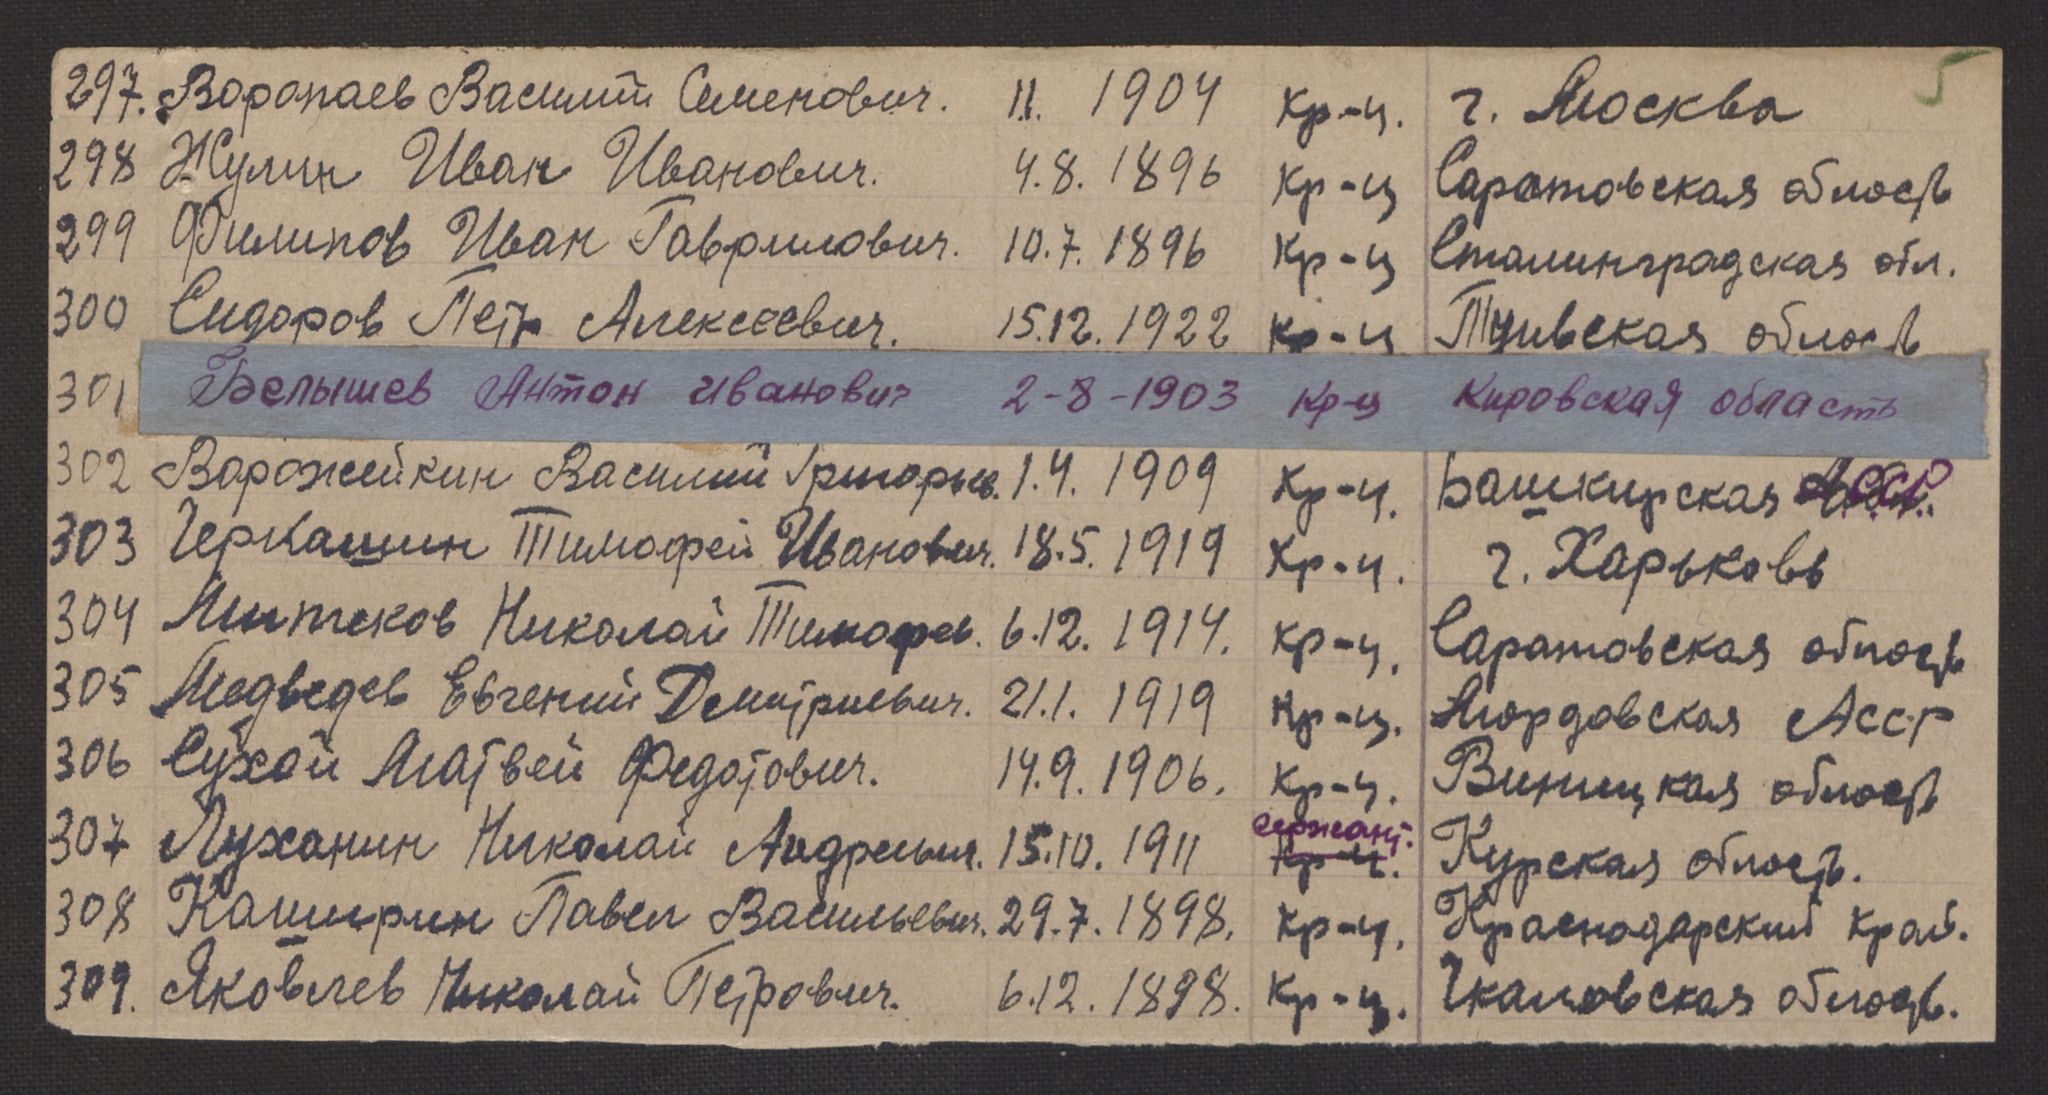 5
297. Воропаев Василий Семенович. 11. 1904 Кр-ц. г. Москва
298 Жулин Иван Иванович. 4.8. 1896 Кр-ц Саратовская область
299 Филипов Иван Гаврилович. 10.7. 1896 Кр-ц Сталинградская обл.
300 Сидоров Петр Алексеевич. 15.12. 1922 Кр-ц область
301 Белышев Антон Иванович 2-8-1903 Кр-ц Кировская область
302 Варожейкин Василий Григорьев. 1.4. 1909 Кр-ц. Башкирская АССР
303 Черкашин Тимофей Иванович. 18.5. 1919 Кр-ц. г. Харьковъ
304 Митяков Николай Тимофев. 6.12. 1914. Кр-ц. Саратовская область
305 Медведев Евгений Демитриевич. 21.1. 1919 Кр-ц. Мордовская АССР
306 Сухой Матвей Федотович. 14.9. 1906. Кр-ц. Виницкая область
сержант.
307 Луханин Николай Андреевич. 15.10. 1911 Кр-ц. Курская область.
308 Каширин Павел Васильевич. 29.7. 1898. Кр-ц. Краснодарский край.
309. Яковлев Николай Петрович. 6.12. 1898. Кр-ц. Чкаловская область.